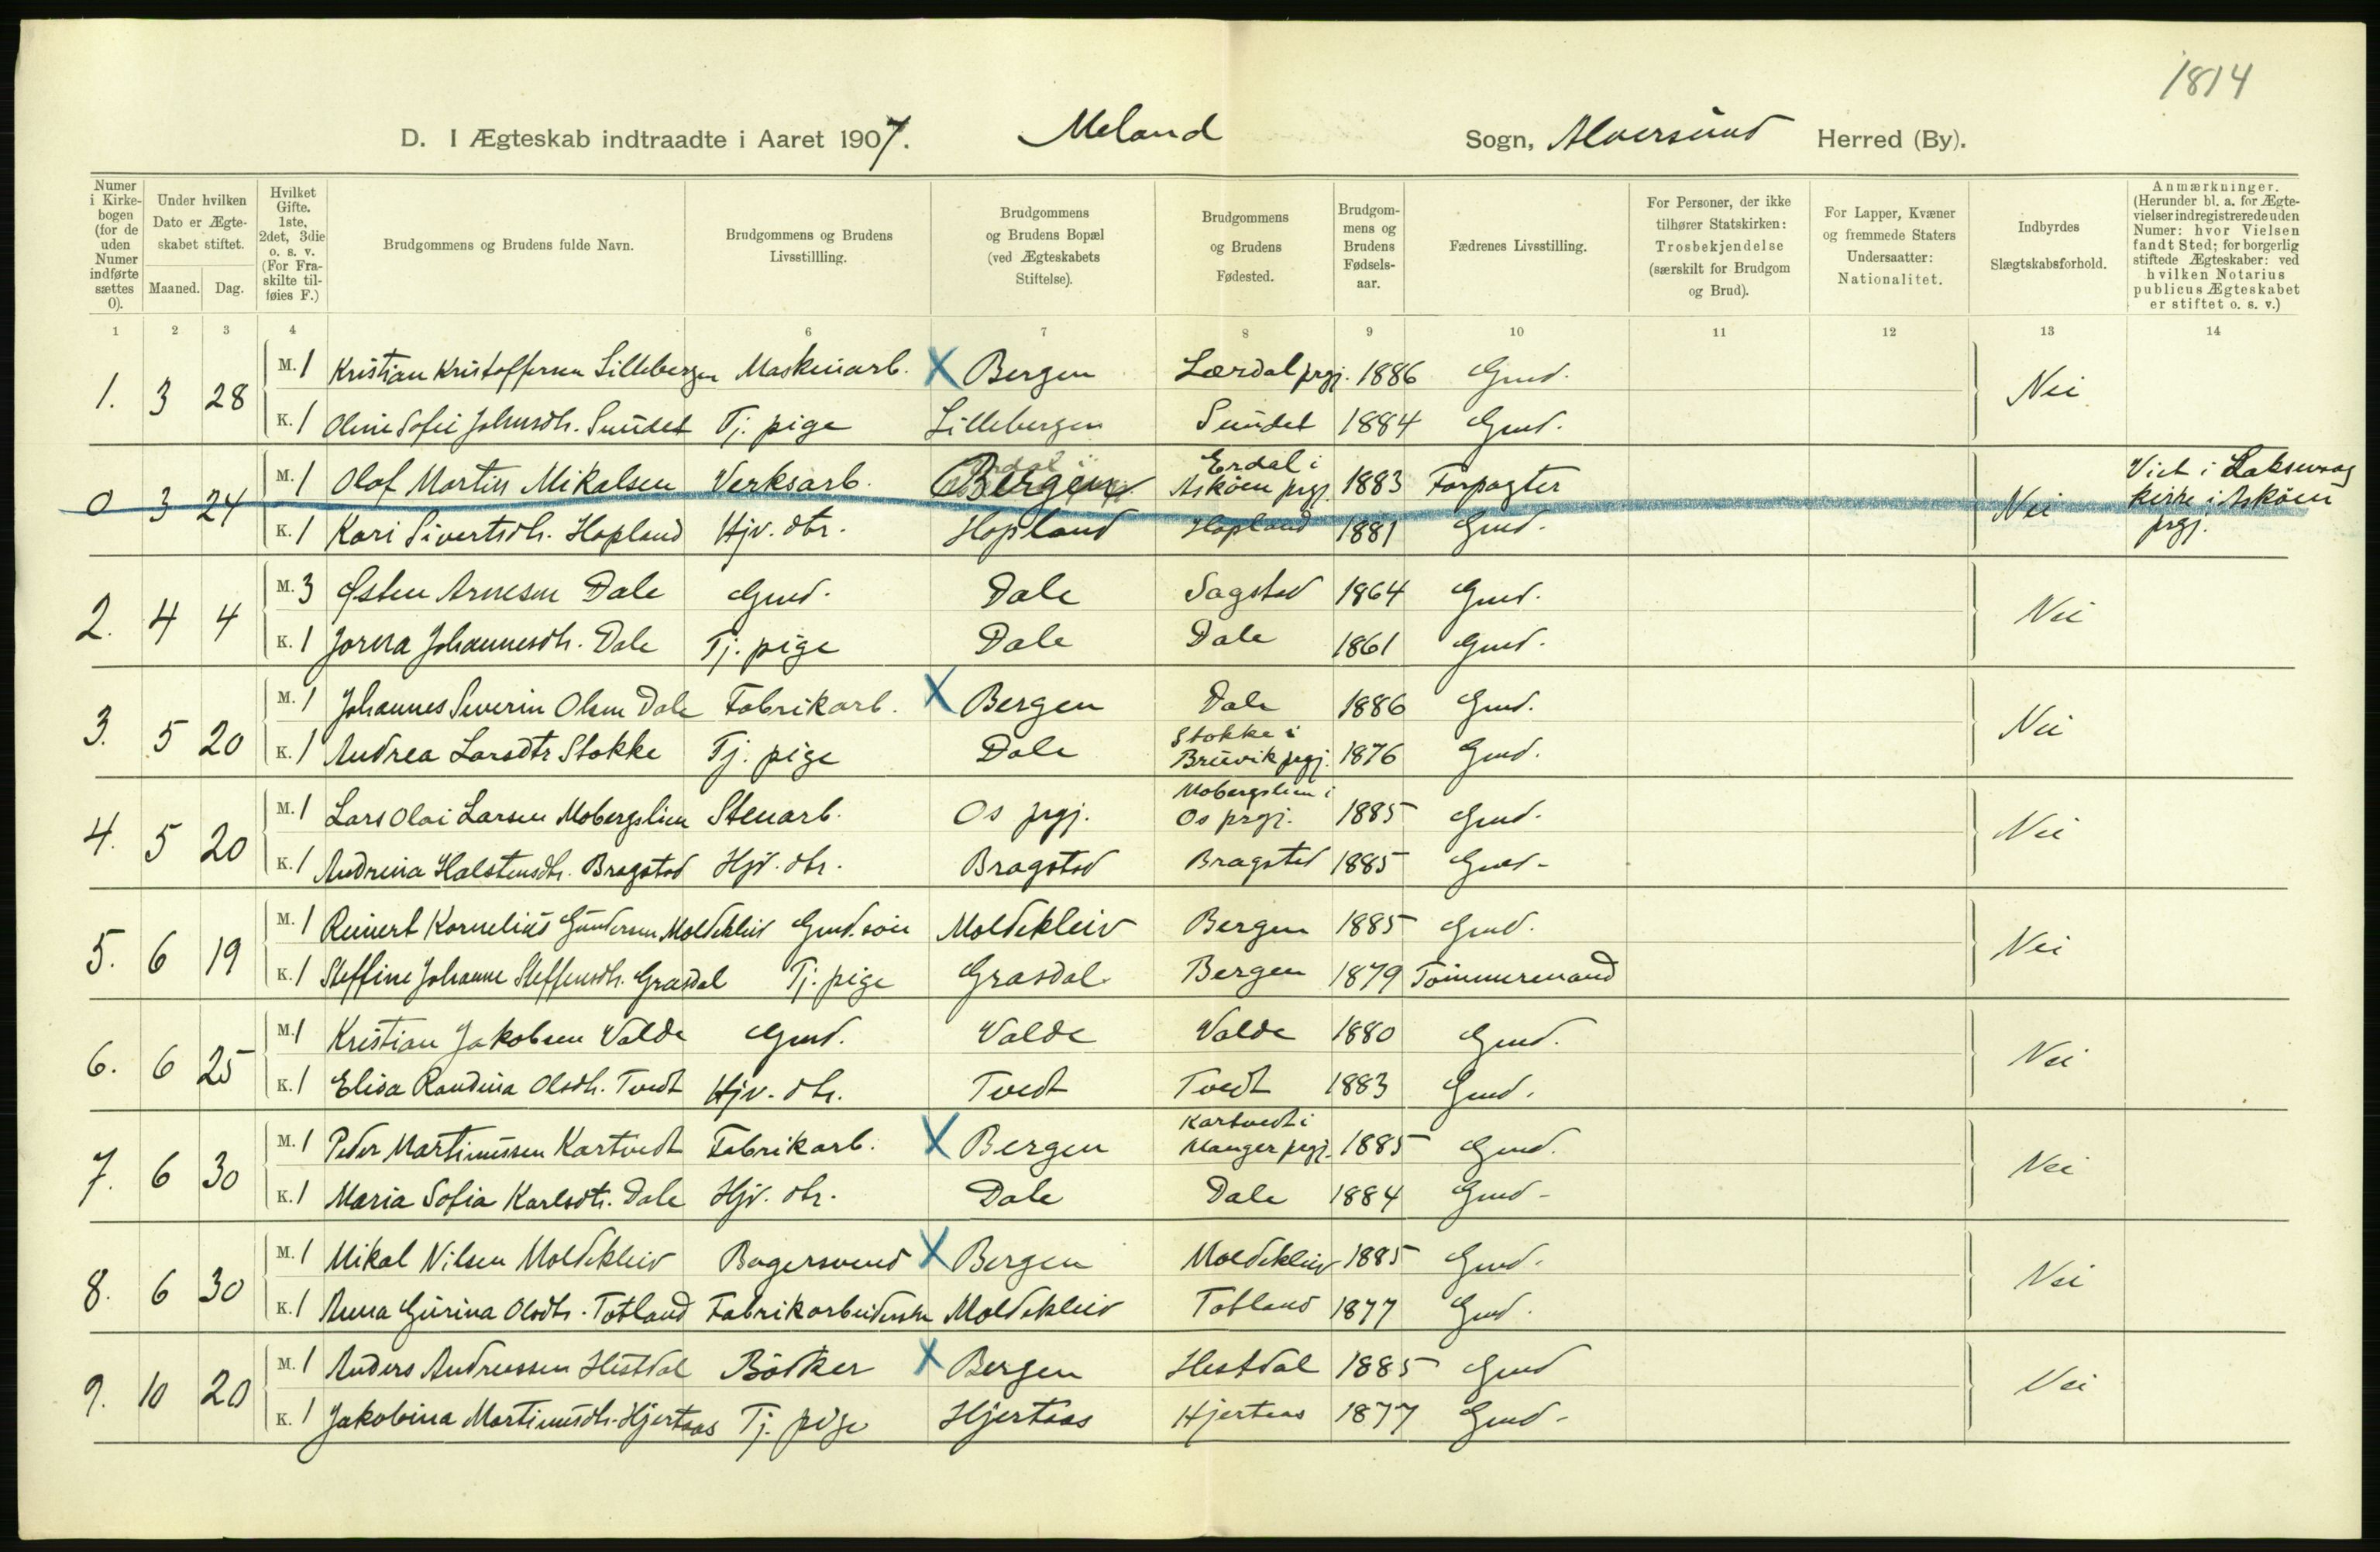 1814
D. I Ægteskab indtraadte i Aaret 1907. Meland Sogn, Alversund Herred (By).
Numer i Kirkebogen (for de uden Numer indførte sættes 0).
Under hvilken Dato er Ægteskabet stiftet.
Maaned. Dag.
Hvilket Gifte. 1ste, 2det, 3die o. s. v. (For Fraskilte tilføies F.)
Brudgommens og Brudens fulde Navn.
Brudgommens og Brudens Livsstillling.
Brudgommens og Brudens Bopæl (ved Ægteskabets Stiftelse).
Brudgommens og Brudens Fødested.
Brudgommens og Brudens Fødselsaar.
Fædrenes Livsstilling.
For Personer, der ikke tilhører Statskirken: Trosbekjendelse (særskilt for Brudgom og Brud).
For Lapper, Kvæner og fremmede Staters Undersaatter: Nationalitet.
Indbyrdes Slægtskabsforhold.
Anmærkninger. (Herunder bl. a. for Ægtevielser indregistrerede uden Numer: hvor Vielsen fandt Sted; for borgerlig stiftede Ægteskaber: ved hvilken Notarius publicus Ægteskabet er stiftet o. s. v.)
1 2 3 4 6 7 8 9 10 11 12 13 14
1. 3 28 M. 1 Kristian Kristoffersen Lillebergen Maskinarb. X Bergen Lærdal prgj. 1886 Gmd. Nei
K. 1 Oline Sofie Johnsdtr. Sundet Tj. pige Lillebergen Sundet 1884 Gmd.
0 3 24 M. 1 Olof Martin Mikalsen Verksarb. Bergen Erdal i Askøen prgj. 1883 Forpagter Nei Viet i Laksevaag kirke i Askøen prgj.
K. 1 Kari Sivertsdtr. Hopland Hjv. dtr. Hopland Hopland 1881 Gmd.
2. 4 4 M. 3 Østen Arnesen Dale Gmd. Dale Sagstad 1864 Gmd. Nei
K. 1 Johannesdtr. Dale Tj. pige Dale Dale 1861 Gmd.
3. 5 20 M. 1 Johannes Severin Olsen Dale Fabrikarb. X Bergen Dale 1886 Gmd. Nei
K. 1 Andrea Larsdtr Stokke Tj. pige Dale Stokke i Bruvik prgj. 1876 Gmd.
4. 5 20 M. 1 Lars Olai Larsen Mobergslien Stenarb. Os prgj. Mobergslien i Os prgj. 1885 Gmd. Nei
K. 1 Andrina Halstensdtr. Bragstad Hjv. dtr. Bragstad Bragstad 1885 Gmd.
5. 6 19 M. 1 Reinert Kornelius Gundersen Moldekleiv Gmd. søn Moldekleiv Bergen 1885 Gmd. Nei
K. 1 Steffine Johanne Steffensdtr. Grasdal Tj. pige Grasdal Bergen 1879 Tømmermand
6. 6 25 M. 1 Kristian Jakobsen Valde Gmd. Valde Valde 1880 Gmd. Nei
K. 1 Elisa Randina Olsdtr. Tvedt Hjv. dtr. Tvedt Tvedt 1883 Gmd.
7. 6 30 M. 1 Peder Martinussen Kartvedt Fabrikarb. X Bergen Kartvedt i Manger prgj. 1885 Gmd. Nei
K. 1 Maria Sofia Karlsdtr. Dale Hjv. dtr. Dale Dale 1884 Gmd.
8. 6 30 M. 1 Mikal Nilsen Moldekleiv Bagersvend X Bergen Moldekleiv 1885 Gmd. Nei
K. 1 Anna Gurina Olsdtr. Totland Fabrikarbeiderske Moldekleiv Totland 1877 Gmd.
9. 10 20 M. 1 Anders Andreassen Hestdal Bødker X Bergen Hestdal 1885 Gmd Nei
K. 1 Jakobina Martinusdtr. Hjertaas Tj. pige Hjertaas Hjertaas 1877 Gmd.